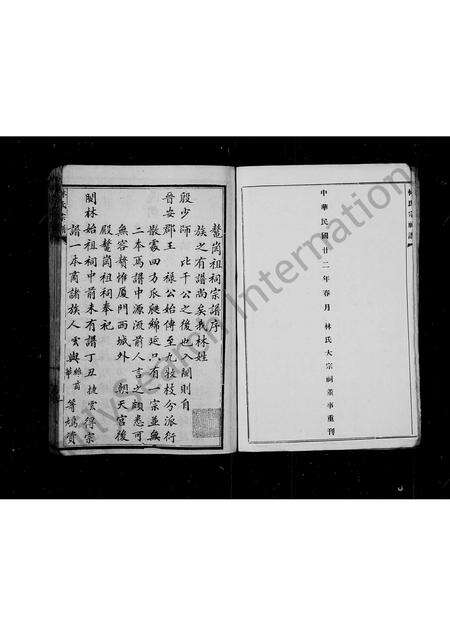 中華民國廿二年春月 林氏大宗祠董事重刊
鰲崗祖祠宗譜序
族之有譜尚矣我林姓
殷少師 比干公之後也入閩則自
晉安郡王 祿公始傳至九牧枝分派衍
散處四方瓜瓞綿延只有一宗並無
二本焉譜中源流前人言之頗悉可
無容贅惟廈門西城外 朝天宮後
殿鰲崗祖祠奉祀
閩林始祖祠中前未有譜丁丑 捷雲得宗
譜一本商諸族人雲輿 等嬀資
International